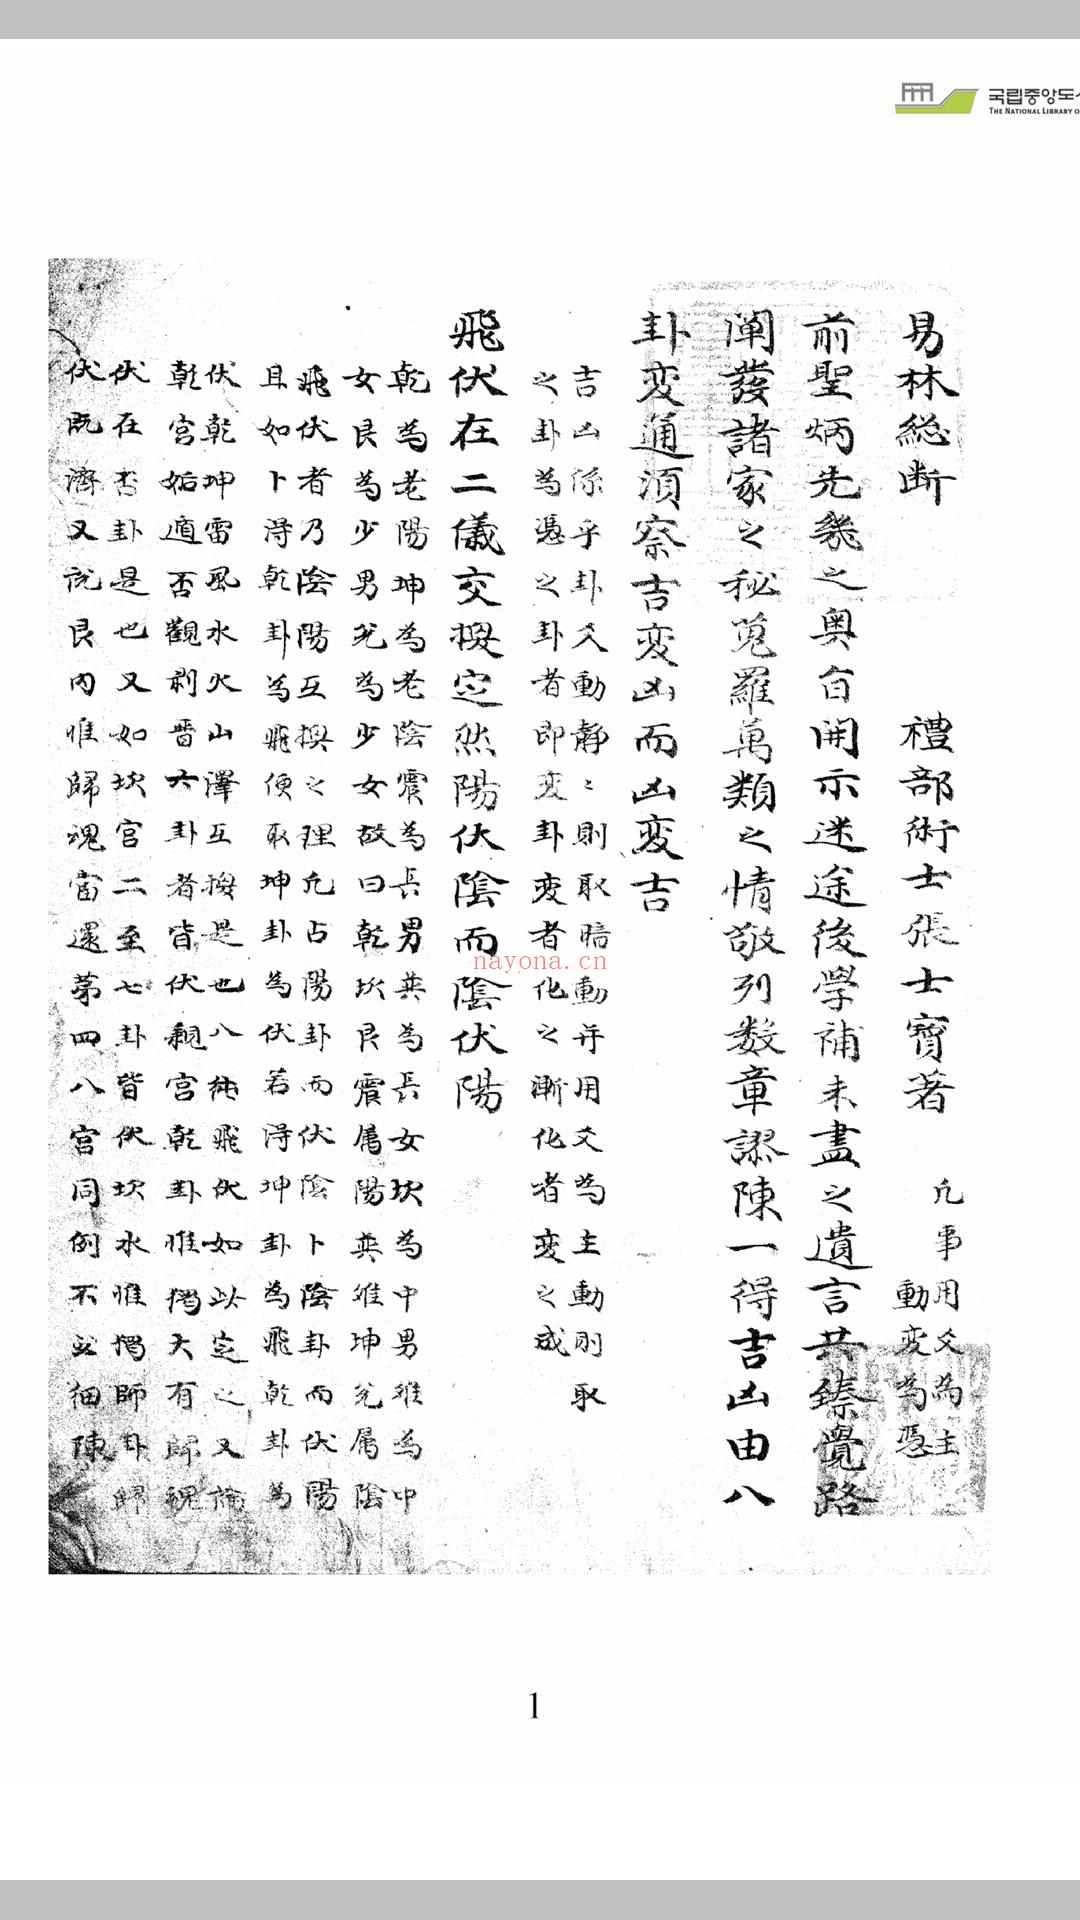 국립중앙도
THE NATIONAL LIBRARY O
易林総断 禮部術士張士寶著 凢事用爻為主
動変為憑
前聖炳先幾之奧旨開示迷途後學補未盡之遺言共臻覺路
闡發諸家之秘蒐羅萬類之情敬列数章謬陳一得吉凶由八
卦変通須察吉変凶而凶変吉
吉凶係乎卦爻動静〻則取暗動并用爻為主動則取
之卦為憑之卦者即変卦変者化之漸化者変之成
飛伏在二儀交換定然陽伏陰而陰伏陽
乾為老陽坤為老陰震為長男巽為長女坎為中男離為中
女艮為少男兊為少女故曰乾坎艮震属陽巽離坤兊属陰
飛伏者乃陰陽互換之理凢占陽卦而伏陰卜陰卦而伏陽
且如卜淂乾卦為飛便取坤卦為伏若淂坤卦為飛乾卦為
伏乾坤雷風水火山澤互換是也八純飛伏如以定之又論
乾宮姤遁否觀剥晋六卦者皆伏親宮乾卦惟獨大有歸魂
伏在否卦是也又如坎宮二至七卦皆伏坎水惟獨師卦歸
伏既濟又説艮内惟歸魂富還苐四八宮同例不必細陳
nayona.cn
1